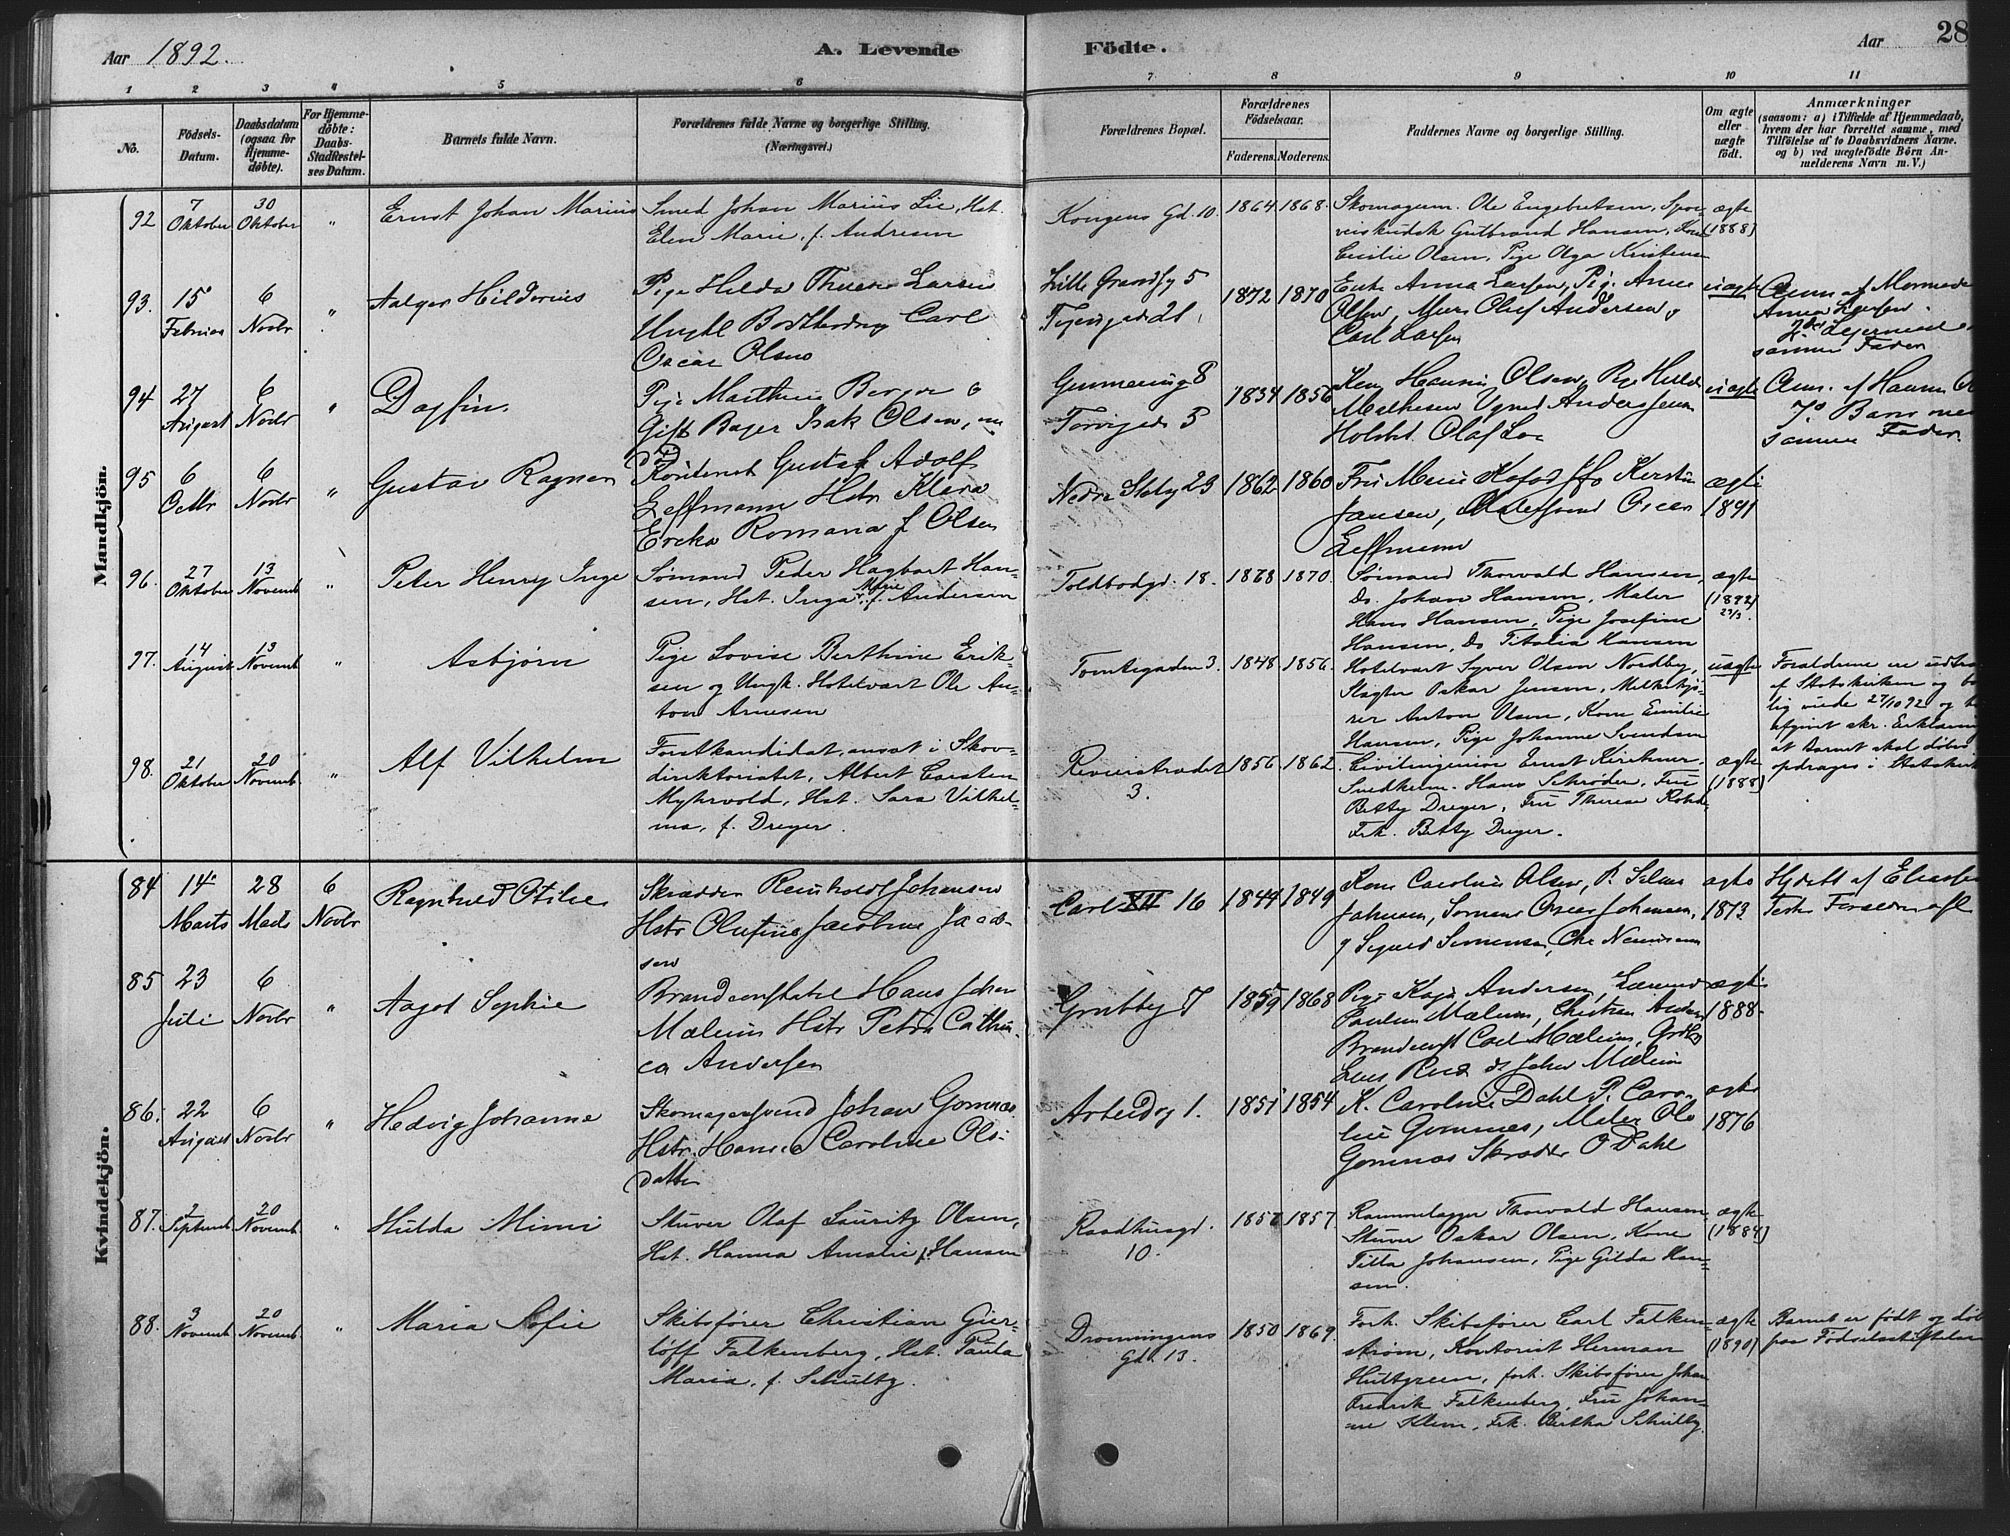 Aar 1892.
A. Levende
Födte.
Aar
28
1 2 3 4 5 6 7 8 9 10 11
No.
Födsels-
Datum.
Daabsdatum
(ogsaa for
Hjemme-
döbte).
For Hjemme-
döbte:
Daabs-
Stadfæstel-
ses Datum.
Barnets fulde Navn.
Forældrenes fulde Navne og borgerlige Stilling.
(Næringsvei.)
Forældrenes Bopæl.
Forældrenes
Födselsaar.
Faderens. Moderens.
Faddernes Navne og borgerlige Stilling.
Om ægte
eller
uægte
födt.
Anmærkninger
(saasom: a) i Tilfælde af Hjemmedaab,
hvem der har forrettet samme, med
Tilföielse af to Daabsvidners Navne.
og b) ved uægtefödte Börn An-
melderens Navn m. V.)
Mandkjön.
92 7 Oktober 30 Oktober "
Ernst Johan Marius
Smed Johan Marius Lie, Hst.
Elen Marie, f. Andresen
Kongens Gd. 10. 1864 1868.
Skomagerm. Ole Engebretsen, Spor-
veiskudsk Gutbrand Hansen, Kone
Emilie Olsen, Pige Olga Kristensen
ægte
(1888)
93. 15 Februar 6 Novbr "
Aalger Hilderius
Pige Hilda Larsen
Ungkl Carl
Oscar Olsen
Lille Grandsg 5
21
1872 1870
Enke Anna Larsen, Pige Anne
Olsen, Murer Oluf Andersen,
Carl Larsen
uægte
Anm af Mormoder
Anna Larsen.
2det Leiermaal
samme Fader
94 27 August 6 Novbr "
Dagfin.
Pige Marthine Berger o
Gift Bager Isak Olsen,
8
Torvgade 3
1834 1856
Kone Hanna Olsen, Pige Hulda
Mathesen
Olaf Lo
uægte
Anm. af Hanna
7de Barn med
samme Fader.
95 6 Octbr 6 Novbr "
Gustav Ragnar
Gustaf Adolf
Zeffmann Hstr Klara
Ericka Romana f Olsen
Nedre Slotsg 23 1862 1860
Fru Marie Hofod
Jansen,
Zeffmann
ægte
1891
96. 27 Oktober 13 Novemb "
Peter Henry Inge
Sømand Peder Hagbart Han-
sen, Hst. Inga Marie f. Andersen
Toldbodgd. 18. 1868 1870.
Sømand Thorvald Hansen,
Ds. Johan Hansen, Maler
Hans Hansen, Pige Josefine
Hansen, Ds Titalia Hansen
ægte
(1892)
97. 14 August 13 Novemb "
Asbjørn
Pige Lovise Berthine Erik-
sen og Ungk. Hotelvært Ole An-
ton Arnesen
Tomtegaden 3. 1848 1856.
Hotelvært Syver Olsen Nordby,
Slagter Oskar Jensen, Melkehyr-
rer Anton Olsen, Kone Emilie
Hansen, Pige Johanne Svendsen
uægte
Forældrene er udtraadt
af Statskirken og bor-
lig viede 27/10 92 og
afgivet skr. Erklæring
at Barnet skal døbes
opdrages i Statskirk
98. 21 Oktober 20 Novemb "
Alf Vilhelm
Forstkandidat, ansat i Skov-
direktoriatet, Albert Carsten
Myhrvold, Hst. Sara Vilhel-
ma, f. Dreyer.
Revierstrædet
3.
1856 1862.
Civilingeniør Ernst Kirchner,
Hans Schrøder, Fru
Betty Dreyer, Fru Therese
Frk. Betty Dreyer.
ægte
(1888)
Kvindekjön.
84 14 Marts 28 Marts 6 Novbr
Ragnhild Otilie
Skrædder Reinholdt Johansen
Hstr Olufine Jacobine Jacob-
sen
Carl XII 16 1844 1849
Kone Caroline Olsen, P. Selma
Johansen, Oscar Johansen,
ægte
1873
Hjdøbt af
85 23 Juli 6 Novbr "
Aagot Sophie
Brandconstabel Hans Johan
Mælum Hstr Petra Cathin-
ca Andersen
Grubbeg 7 1859 1868
Pige Kaja Andersen,
Pauline Mælum, Christian
Brandconst Carl Mælum,
ds Johan Mælum
ægte
1888
86. 22 August 6 Novbr "
Hedvig Johanne
Skomagersvend Johan Gomnæs
Hstr. Hanna Caroline Ols-
datter
Arbeidsg 1. 1851 1854
K. Caroline Dahl P. Caro-
line Gomnæs, Maler Ole
Gomnæs Skrædder O Dahl
ægte
1876
87. 2 Septemb 20 Novemb "
Hulda Mimi
Stuver Olaf Lauritz Olsen,
Hst. Hanna Amalie f. Hansen
Raadhusgd.
10.
1857.
Thorvald Hansen,
Stuver Oskar Olsen, Kone
Titta Johansen, Pige Gilda Han-
sen.
ægte
(1884)
88. 3 Novemb 20 Novemb "
Maria Sofie
Skibsfører Christian Gier-
løff Falkenberg, Hst. Paula
Maria, f. Schultz.
Dronningens
Gd. 13.
1850 1869.
Forh. Skibsfører Carl Falken-
strøm, Kontorist Herman
Hultgreen, forh. Skibsfører Johan
Fredrik Falkenberg, Fru Johan-
ne Klem, Frk. Bertha Schultz.
ægte
(1890)
Barnet er født og døbt
paa Fødselsstiftelsen